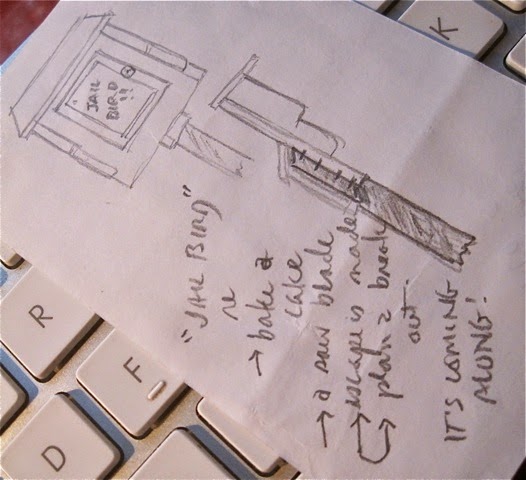 JAIL
BIRD
!!
"JAIL BIRD"
re
→ bake a
cake
→ a saw blade
→ escape is made
→ plan a break
out.
IT'S COMING
ALONG!
K
R
F
D